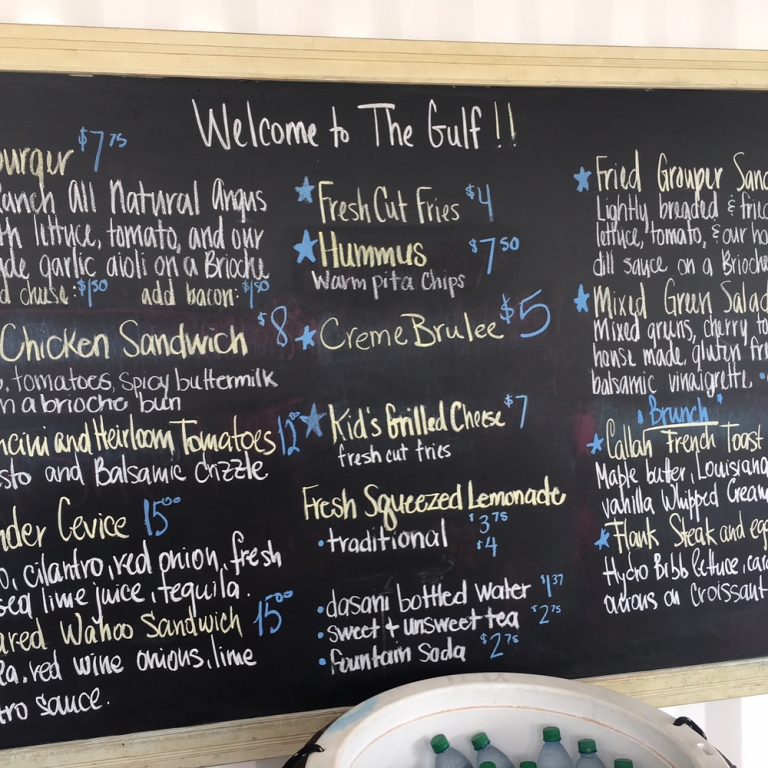 Welcome to The Gulf !!
urger $7 75
Ranch All Natural Angus
th lettuce, tomato, and our
de garlic aioli on a Brioche
d cheese: $1 50 add bacon: $1 50
Chicken Sandwich $8
, tomatoes, spicy buttermilk
n a brioche bun
ncini and Heirloom Tomatoes 12 00
sto and Balsamic drizzle
nder Cevice 15 00
o, cilantro, red onion, fresh
sed lime juice, tequila.
ared Wahoo Sandwich 15 00
ea, red wine onions, lime
tro sauce.
Fresh Cut Fries $4
Hummus $7 50
Warm pita chips
Creme Brulee $5
Kid's Grilled Cheese $7
fresh cut fries
Fresh Squeezed Lemonade
• traditional $3 75
$4
• dasani bottled water $1 37
• sweet + unsweet tea $2 75
• fountain Soda $2 75
Fried Grouper Sand
Lightly breaded & fried
lettuce, tomato, & our ho
dill sauce on a Brioche
Mixed Green Salad
Mixed greens, cherry to
house made, gluten fre
balsamic vinaigrette
Brunch
Callah French Toast
Maple butter, Louisiana
vanilla Whipped Cream
Flank Steak and eg
Hydro Bibb lettuce, car
onions on Croissant